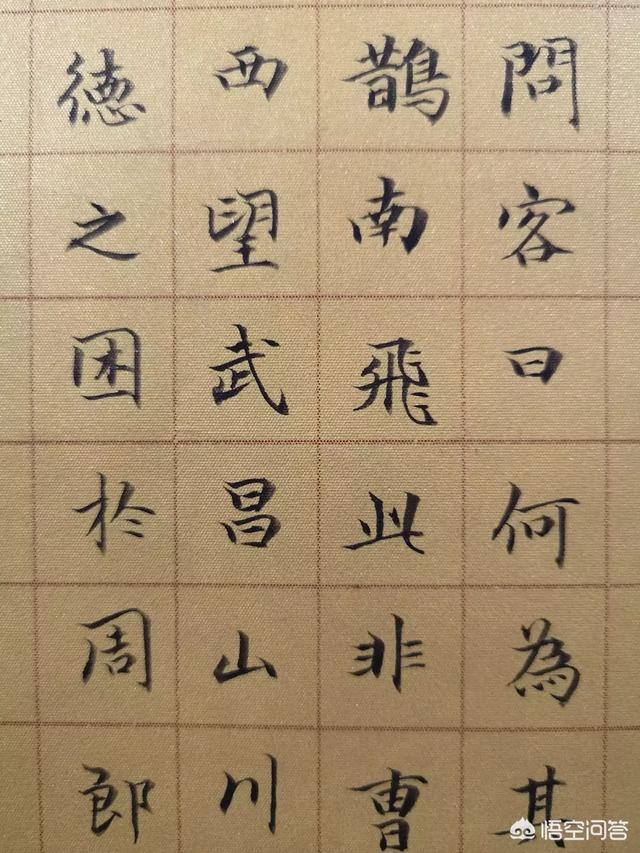 問客曰何為其
鵲南飛此非曹
西望武昌山川
德之困於周郎
悟空问答